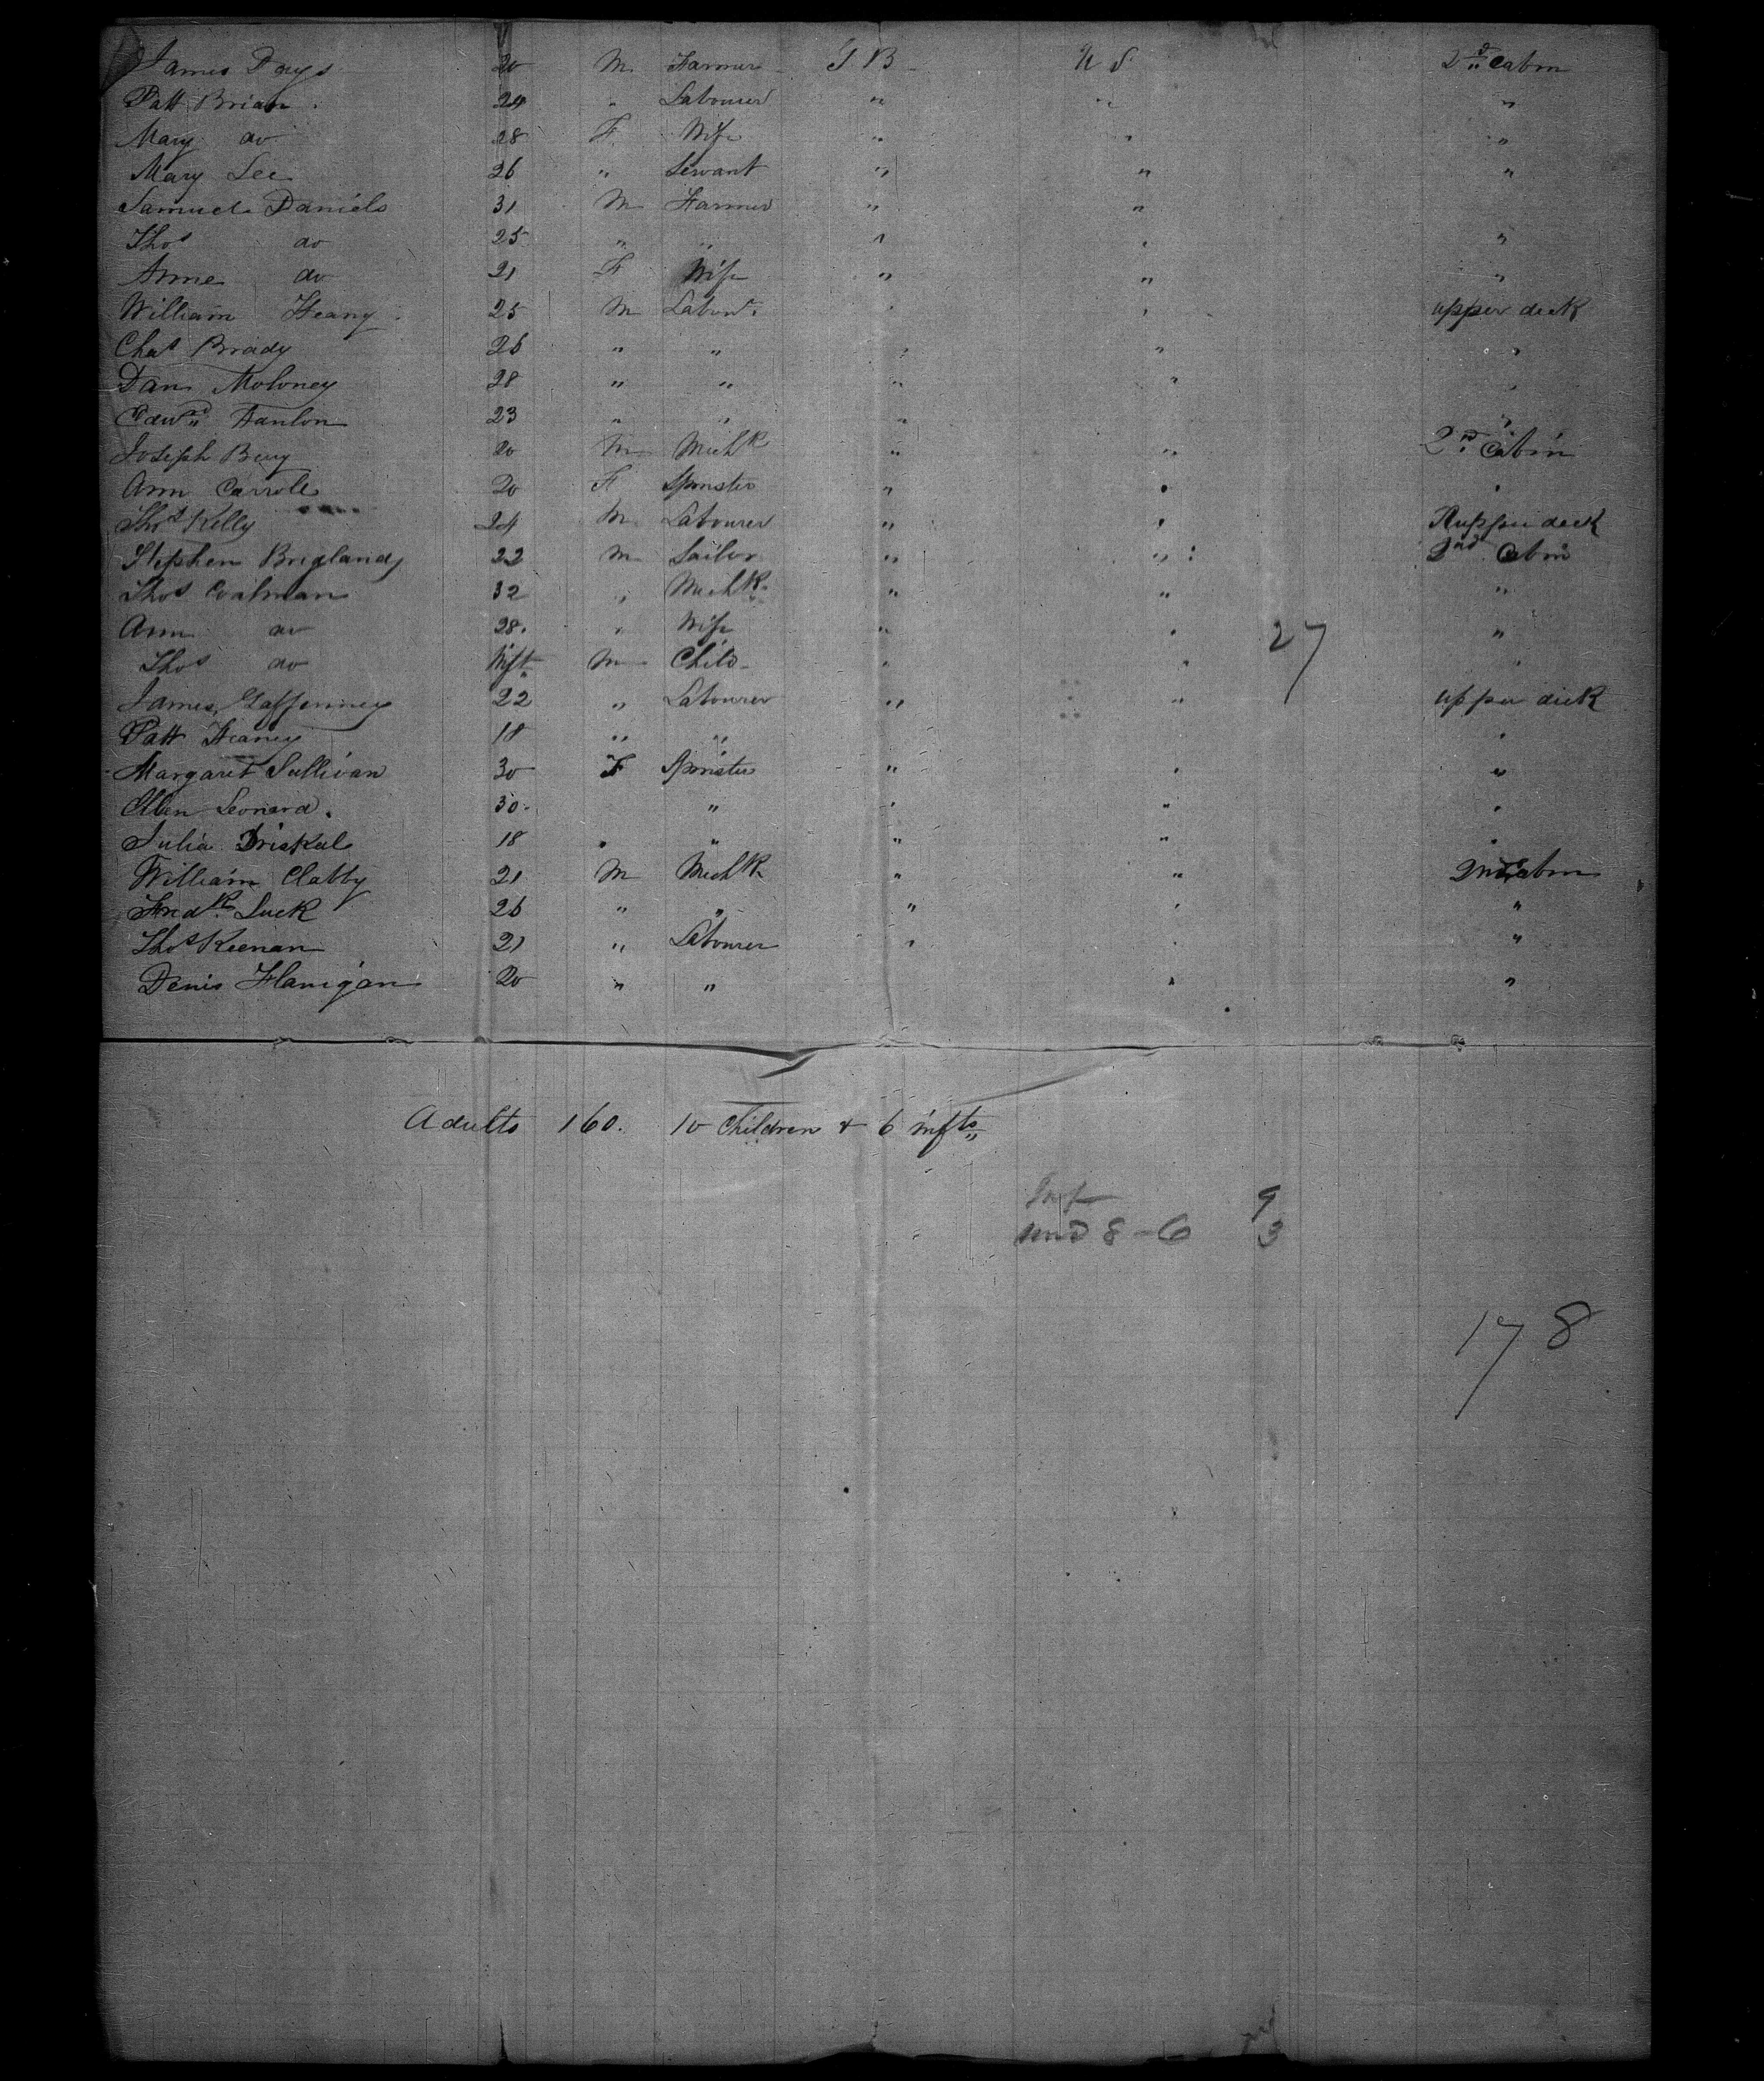 James Days 20 M Farmer G B U S 2nd Cabin
Patt Brian 24 " Labourer " " "
Mary do 28 F Wife " " "
Mary Lee 26 " Servant " " "
Samuel Daniels 31 M Farmer " "
Thos do 25 " " " " "
Anne do 21 F Wife " " "
William Heany 25 M Labour. " " upper deck
Chas Brady 26 " " " " "
Dan Moloney 28 " " " " "
Edwd Hanlon 23 " " " "
Joseph Bury 20 M MechK " " 2nd Cabin
Ann Carroll 20 F Spinster " " "
Thos Kelly 24 M Labourer " " upper deck
Stephen 22 M Sailor " " 2nd Cabin
Thos Coalman 32 " MechK " " "
Ann do 28. " Wife " " "
27
Thos do Inft M Child " " "
James Gaffenney 22 " Labourer " " upper deck
Patt Heaney 18 " " "
Margaret Sullivan 30 F Spinster " " "
Ellen Leonard. 30. " " " "
Julia Driskel 18 " " " " "
William Clabby 21 M MechK " " 2nd Cabin
FredK Luck 26 " " " " "
Thos Keenan 21 " Labourer " " "
Denis Flanigan 20 " " " "
Adults 160. 10 Children & 6 infts
Inf 9
und 8 - 6 3
178